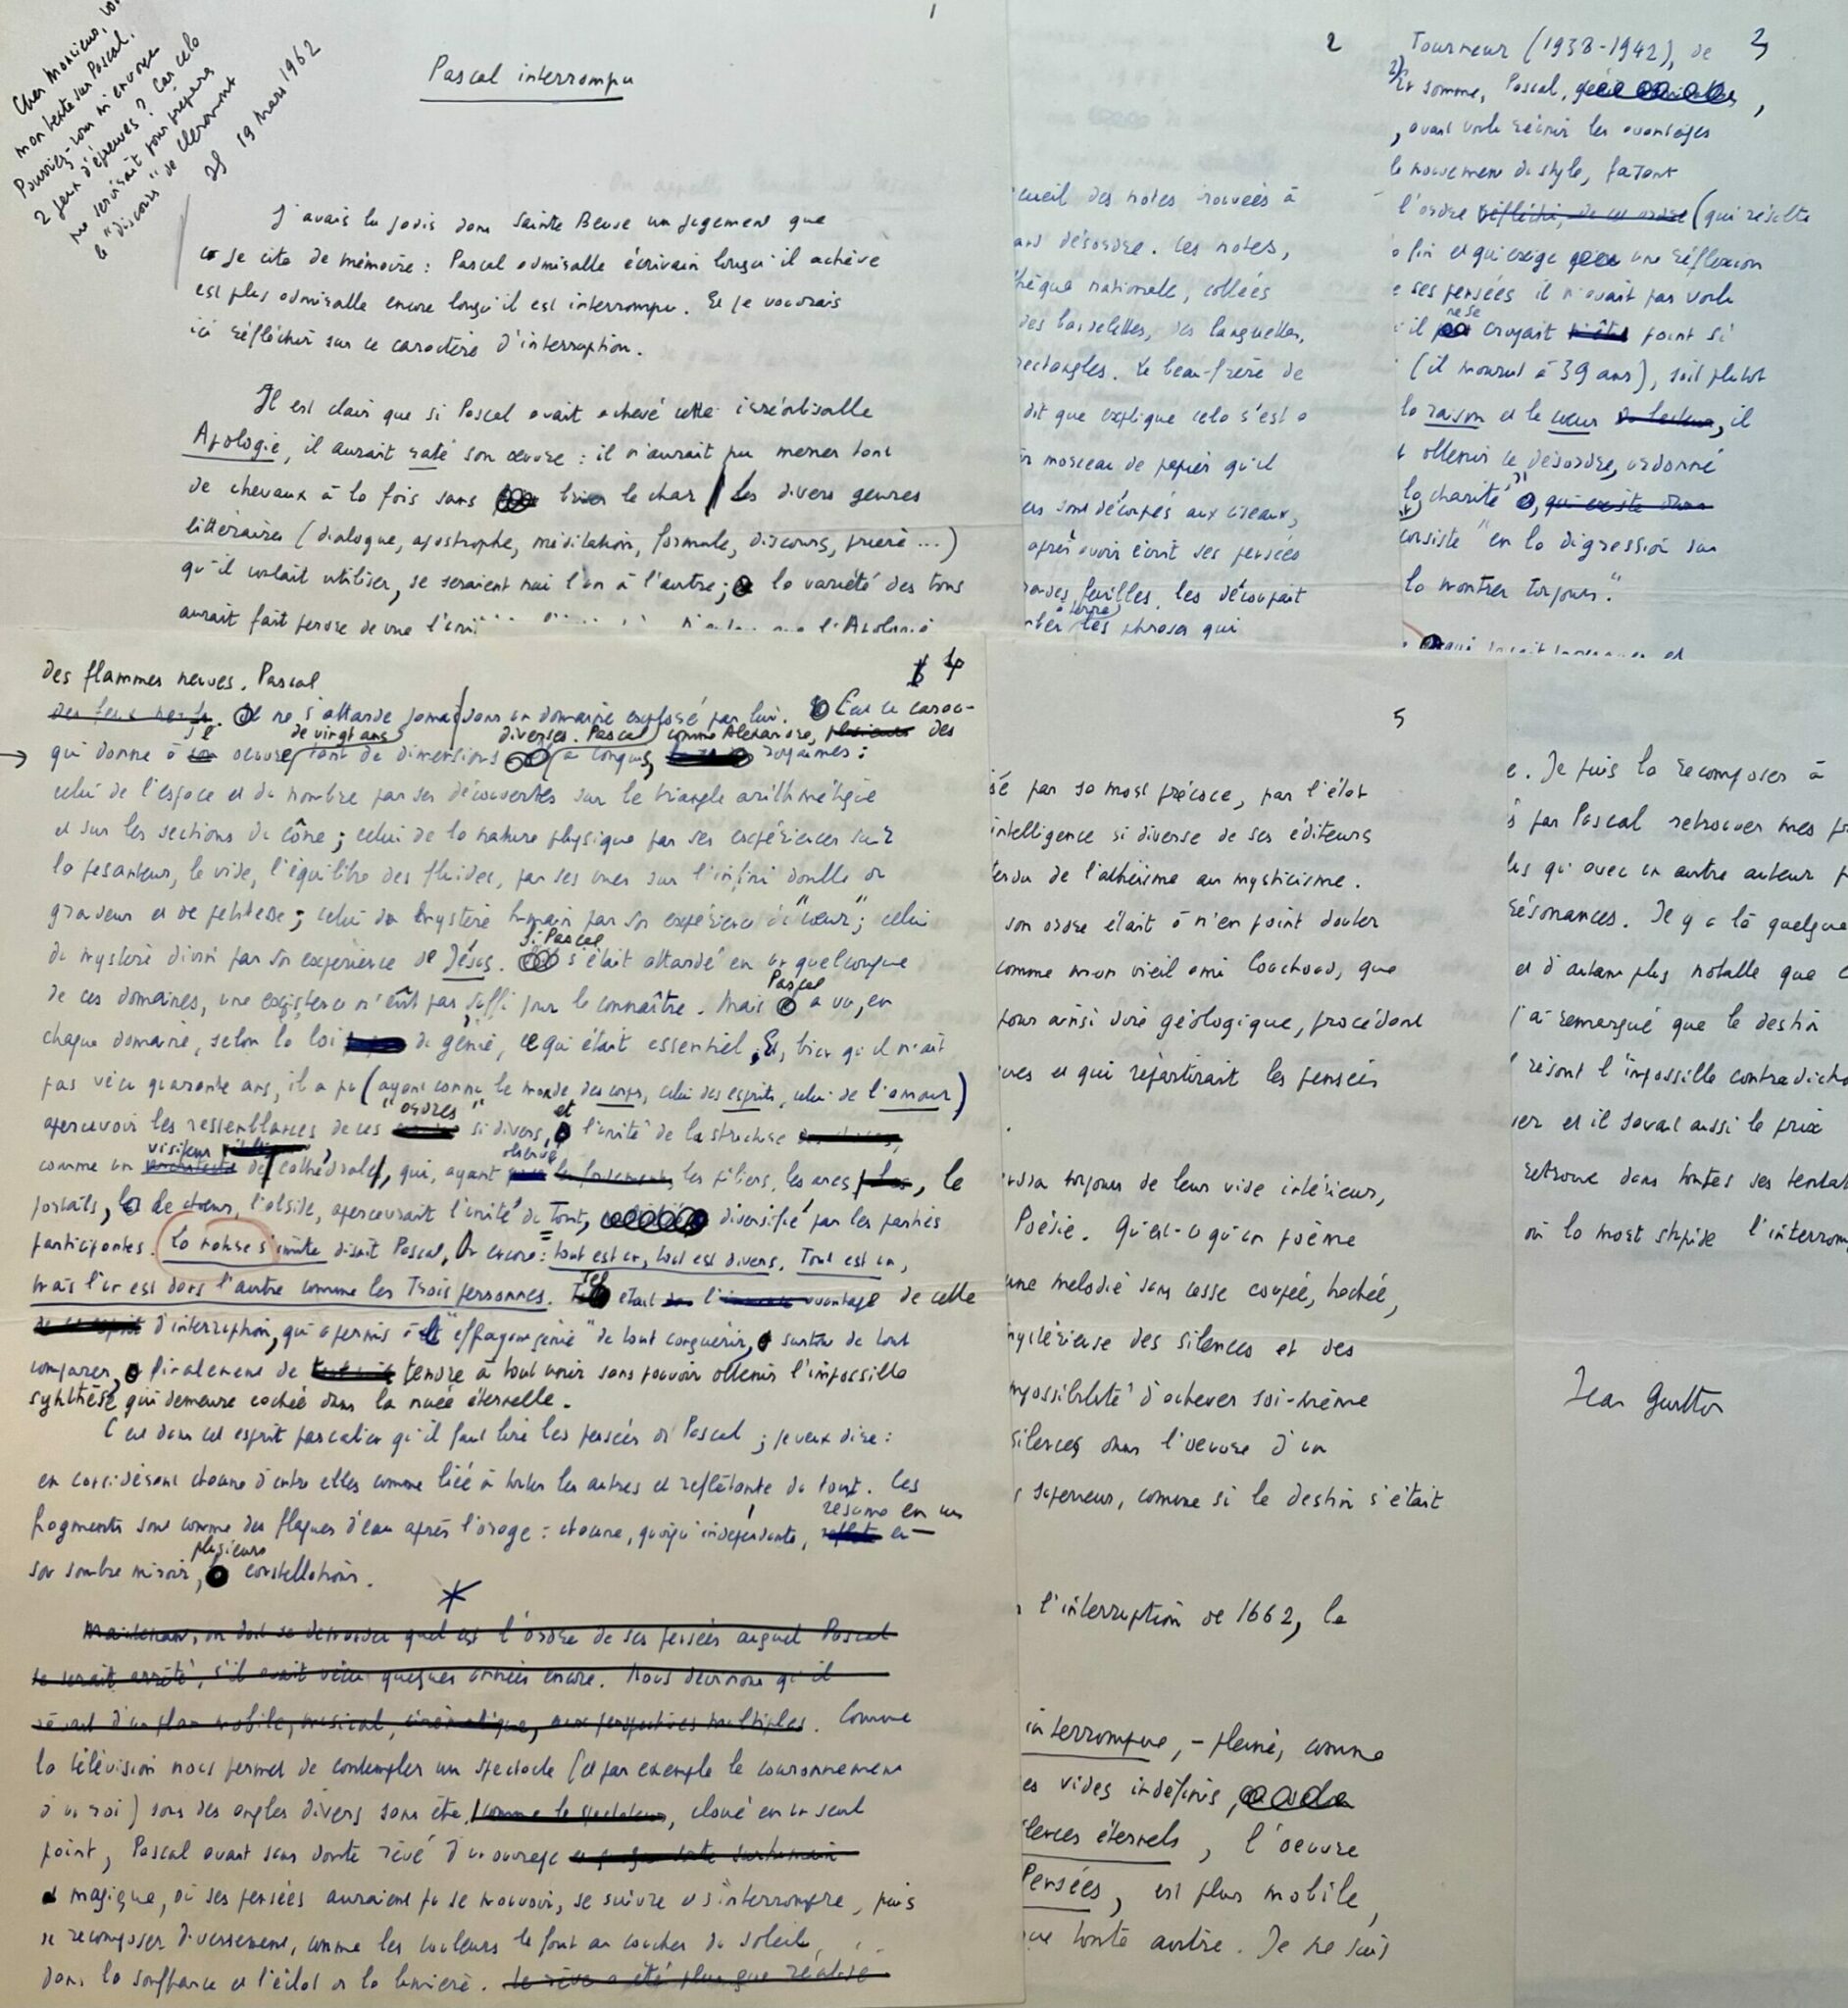 Cher Monsieur, voi
mon texte sur Pascal.
Pourriez-vous m'envoyer
2 jeux d'épreuves ? Car cela
me servirait pour préparer
le "discours" de Clermont
19 mars 1962
1
Pascal interrompu
J'avais lu jadis dans Sainte Beuve un jugement que
je cite de mémoire : Pascal admirable écrivain lorsqu'il achève
est plus admirable encore lorsqu'il est interrompu. Et je voudrais
ici réfléchir sur ce caractère d'interruption.
Il est clair que si Pascal avait achevé cette irréalisable
Apologie, il aurait raté son œuvre : il n'aurait pu mener tant
de chevaux à la fois sans briser le char / Les divers genres
littéraires (dialogue, apostrophe, méditation, formule, discours, prière ...)
qu'il voulait utiliser, se seraient nui l'un à l'autre ; la variété des tons
aurait fait perdre de vue l'
2
cueil des notes trouvées à
ans désordre. Ces notes,
thèque nationale, collées
des bandelettes, des languettes,
rectangles. Le beau-frère de
dit que explique cela s'est
morceau de papier qu'il
sont découpés aux ciseaux,
après avoir écrit ses pensées
randes feuilles, les découpait
à terre
les phrases qui
3
Tourneur (1938-1942), de
En somme, Pascal,
, avait voulu réunir les avantages
le mouvement du style, faisant
l'ordre réfléchi, de cet ordre (qui résulte
fin et qui exige une réflexion
ses pensées il n'avait pas voulu
ne se
il croyait point si
(il mourut à 39 ans), soit plutôt
la raison et le cœur du lecteur, il
obtenir ce désordre, ordonné
la charité", qui existe dans
consiste "en la digression sur
la montrer toujours."
4
des flammes neuves. Pascal
Il ne s'attarde jamais dans un domaine explosé par lui. C'est ce carac-
de vingt ans diverses. Pascal comme Alexandre, plusieurs des
qui donne à son oeuvre tant de dimensions a conquis, royaumes :
celui de l'espace et du nombre par ses découvertes sur le triangle arithmétique
et sur les sections du cône ; celui de la nature physique par ses expériences sur
la pesanteur, le vide, l'équilibre des fluides, par ses vues sur l'infini double de
grandeur et de petitesse ; celui du mystère humain par son expérience du "cœur" ; celui
du mystère divin par son expérience de Jésus. Si Pascal s'était attardé en un quelconque
de ces domaines, une existence n'eût pas suffi pour le connaître. Mais Pascal a vu, en
chaque domaine, selon la loi du génie, ce qui était essentiel. Et, bien qu'il n'ait
pas vécu quarante ans, il a pu (ayant connu le monde des corps, celui des esprits, celui de l'amour)
"ordres" et
apercevoir les ressemblances de ces si divers, l'unité de la structure
visiteur observé
comme un architecte de cathédrale, qui, ayant les fondements, les piliers, les arcs, le
portails, le chœur, l'abside, apercevrait l'unité du Tout, diversifié par les parties
participantes. La nature s'imite disait Pascal, Ou encore : tout est un, tout est divers. Tout est un,
mais l'un est dans l'autre comme les Trois personnes. Tel était l'avantage de cette
d'interruption, qui a permis à cet "effrayant génie" de tout conquérir, surtout de tout
comparer, finalement de tendre à tout unir sans pouvoir obtenir l'impossible
synthèse qui demeure cachée dans la nuée éternelle.
C'est dans cet esprit pascalien qu'il faut lire les pensées de Pascal ; je veux dire :
en considérant chacune d'entre elles comme liée à toutes les autres et reflétante du tout. Ces
fragments sont comme des flaques d'eau après l'orage : chacune, quoiqu'indépendante, reflète en
résume en un
son sombre miroir, plusieurs constellations.
Maintenant, on doit se demander quel est l'ordre de ses pensées auquel Pascal
se serait arrêté, s'il avait vécu quelques années encore. Nous devinons qu'il
rêvait d'un plan mobile, musical, cinématique, aux perspectives multiples. Comme
la télévision nous permet de contempler un spectacle (et par exemple le couronnement
d'un roi) sous des angles divers sans être, comme le spectateur, cloué en un seul
point, Pascal avait sans doute rêvé d'un ouvrage
magique, où ses pensées auraient pu se mouvoir, se suivre et s'interrompre, puis
se recomposer diversement, comme les couleurs le font au coucher du soleil,
dans la souffrance et l'éclat de la lumière. Le rêve a été plus que réalisé
5
sé par sa mort précoce, par l'état
intelligence si diverse de ses éditeurs
tendu de l'athéisme au mysticisme.
son ordre était à n'en point douter
comme mon vieil ami Couchoud, que
pour ainsi dire géologique, procédant
ques et qui répartirait les pensées
toujours de leur vide intérieur,
Poésie. Qu'est-ce qu'un poème
une mélodie sans cesse coupée, hachée,
mystérieuse des silences et des
mpossibilité d'achever soi-même
silences dans l'oeuvre d'un
supérieur, comme si le destin s'était
l'interruption de 1662, le
interrompue, - pleine, comme
es vides indéfinis,
lences éternels, l'oeuvre
Pensées, est plus mobile,
que toute autre. Je ne sais
e. Je puis la recomposer à
s par Pascal retrouver mes p
lus qu'avec un autre auteur
résonances. Il y a là quelque
et d'autant plus notable que
j'ai remarqué que le destin
résout l'impossible contradict
er et il savait aussi le prix
retrouve dans toutes ses tentat
où la mort stupide l'interrom
Jean Guitton